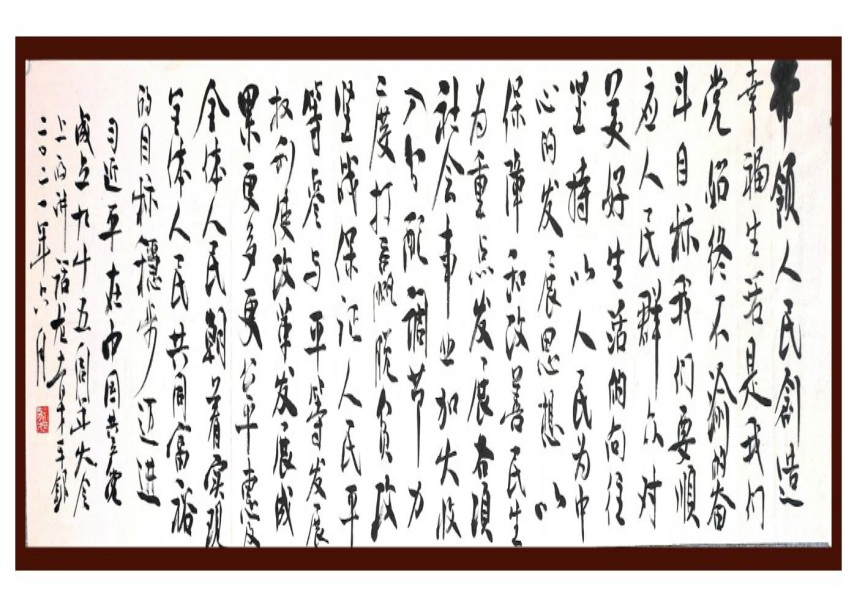 带领人民创造
幸福生活是我们
党始终不渝的奋
斗目标我们要顺
应人民群众对
美好生活的向往
坚持以人民为中
心的发展思想以
保障和改善民生
为重点发展各项
社会事业加大收
入分配调节力
度打赢脱贫攻
坚战保证人民平
等参与平等发展
权利使改革发展成
果更多更公平惠及
全体人民朝着实现
全体人民共同富裕
的目标稳步迈进
习近平在中国共产党
成立九十五周年大会
上的讲话
二〇二一年六月